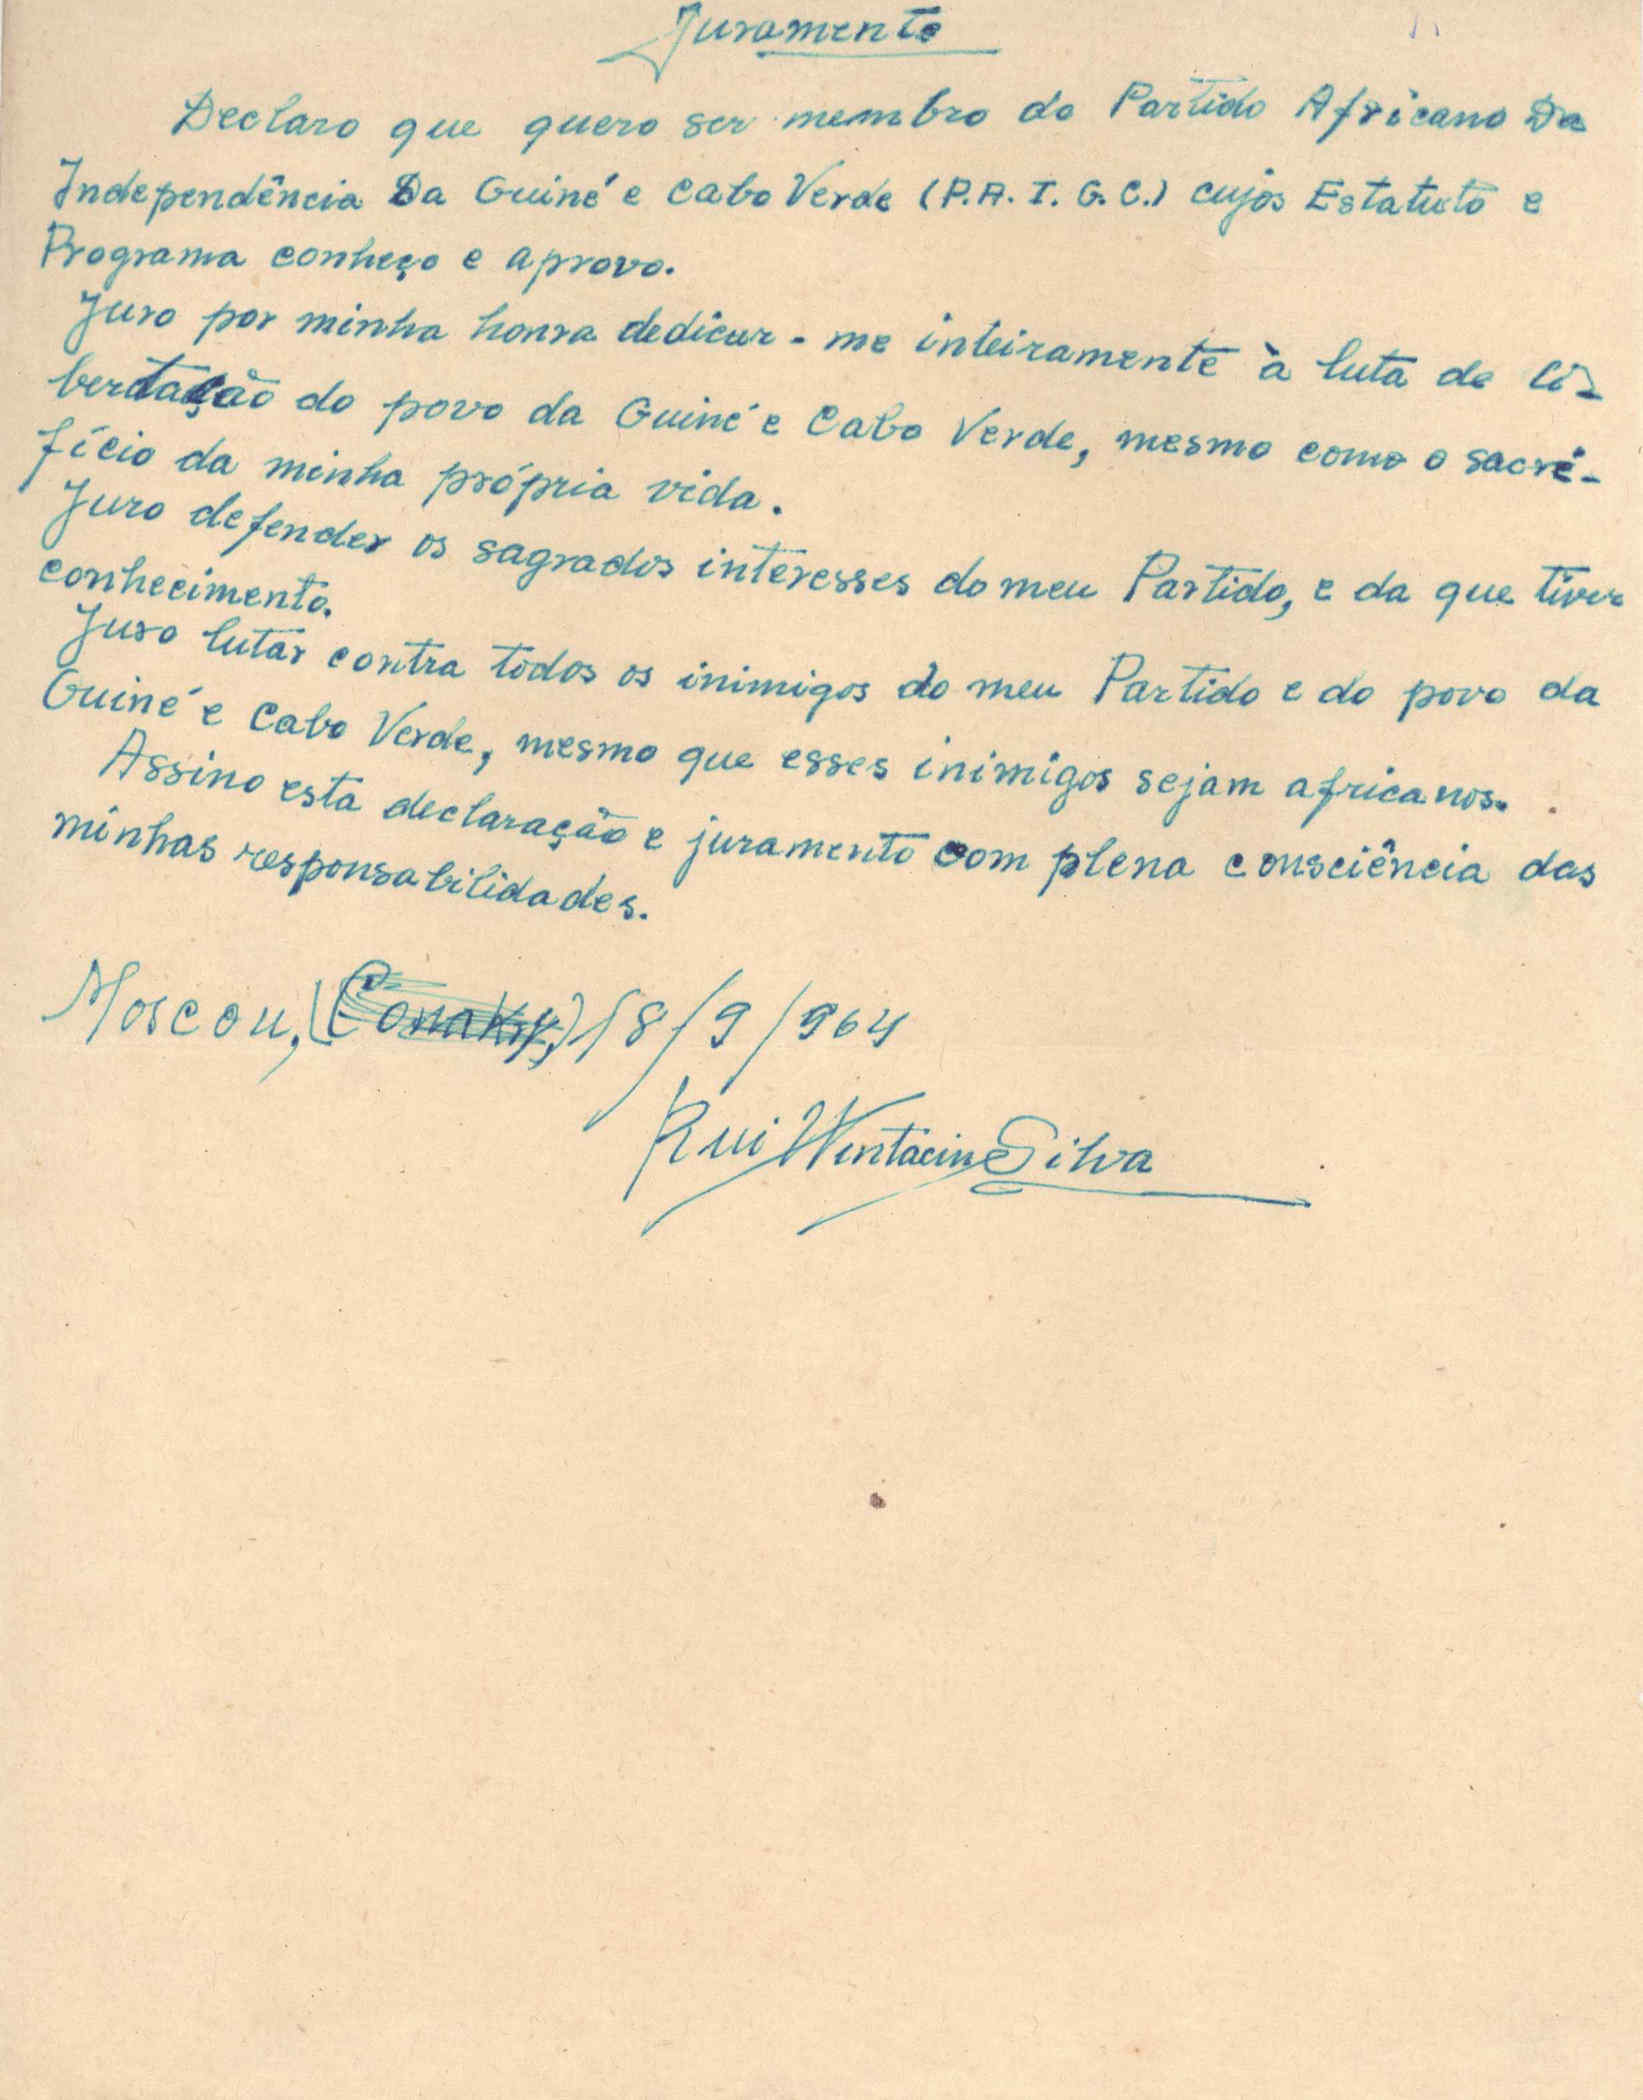 Juramento
Declaro que quero ser membro do Partido Africano Da
Independência Da Guiné e Cabo Verde (P.A.I.G.C.) cujos Estatuto e
Programa conheço e aprovo.
Juro por minha honra dedicar-me inteiramente à luta de li-
bertação do povo da Guiné e Cabo Verde, mesmo como o sacri-
fício da minha própria vida.
Juro defender os sagrados interesses do meu Partido, e da que tiver
conhecimento.
Juro lutar contra todos os inimigos do meu Partido e do povo da
Guiné e Cabo Verde, mesmo que esses inimigos sejam africanos.
Assino esta declaração e juramento com plena consciência das
minhas responsabilidades.
Moscou, (Conakry,) 18/9/964
Rui Silva